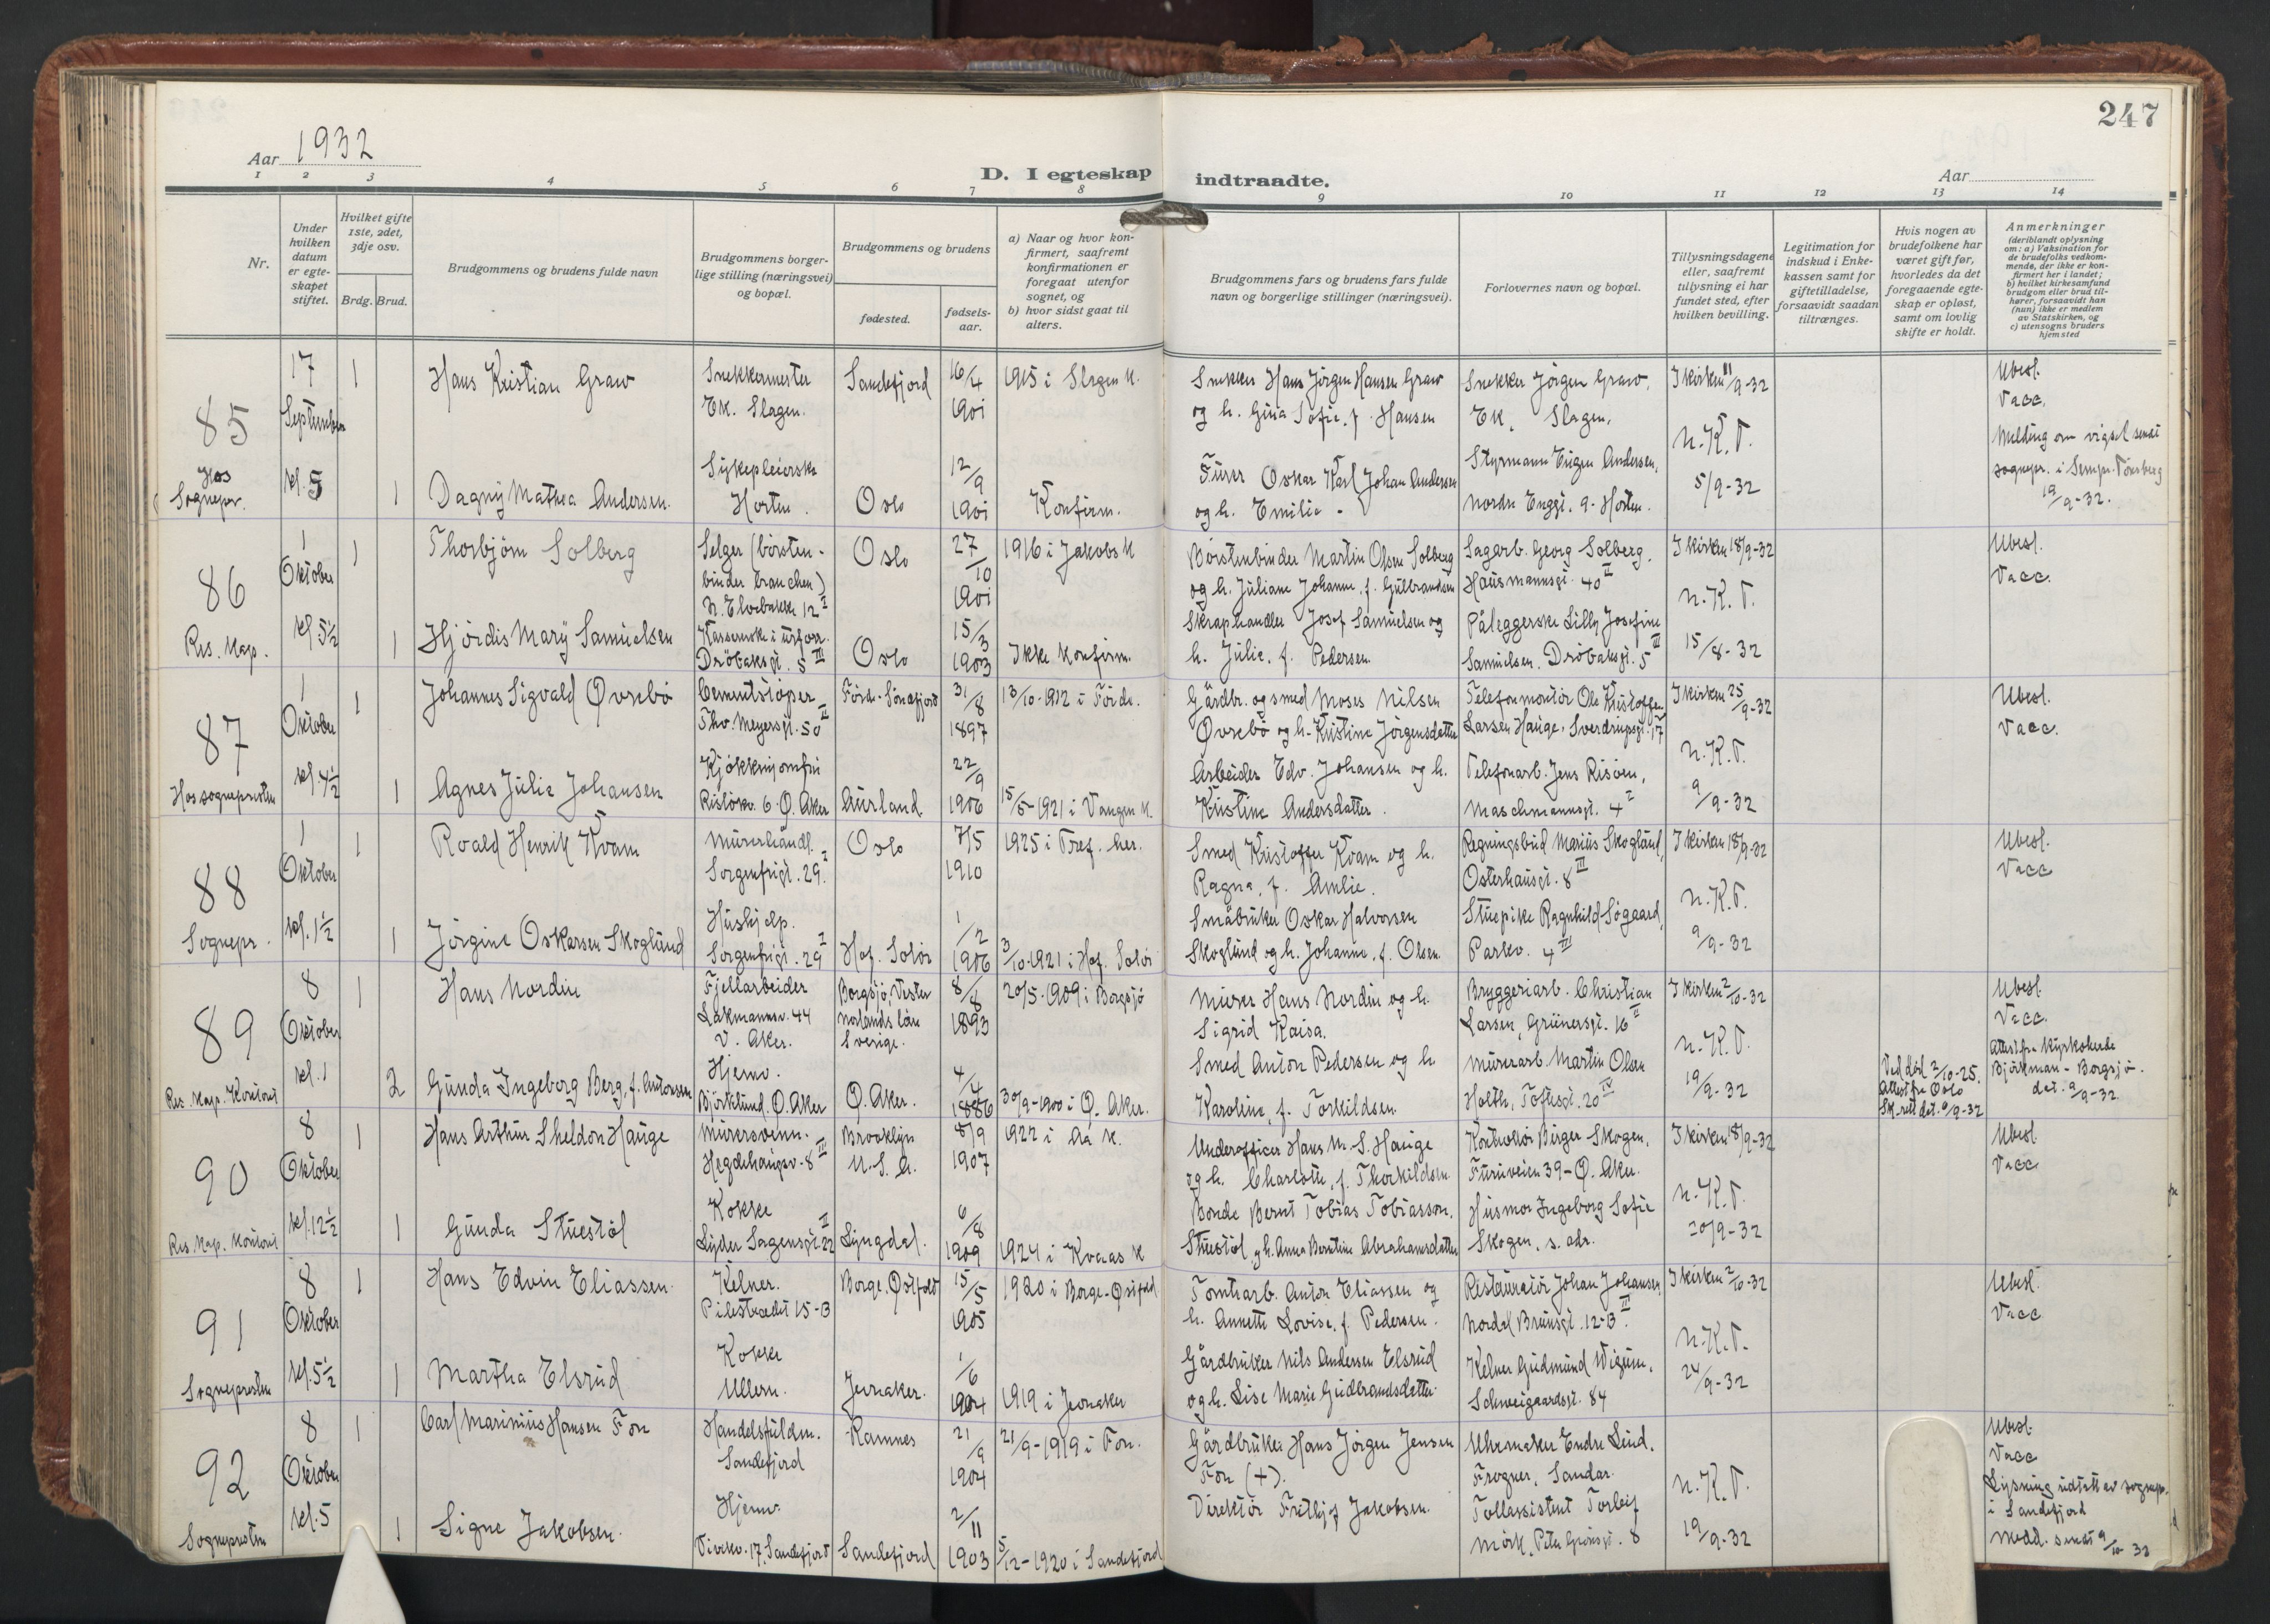 247
Aar 1932
D. I egteskap indtraadte.
Aar
1 2 3 4 5 6 7 8 9 10 11 12 13 14
Nr.
Under hvilken datum er egteskapet stiftet.
Hvilket gifte 1ste, 2det, 3dje osv.
Brdg. Brud.
Brudgommens og brudens fulde navn
Brudgommens borgerlige stilling (næringsvei) og bopæl.
Brudgommens og brudens
fødested.
fødselsaar.
a) Naar og hvor konfirmert, saafremt konfirmationen er foregaat utenfor sognet, og
b) hvor sidst gaat til alters.
Brudgommens fars og brudens fars fulde navn og borgerlige stillinger (næringsvei).
Forlovernes navn og bopæl.
Tillysningsdagene eller, saafremt tillysning ei har fundet sted, efter hvilken bevilling.
Legitimation for indskud i Enkekassen samt for giftetilladelse, forsaavidt saadan tiltrænges.
Hvis nogen av brudefolkene har været gift før, hvorledes da det foregaaende egteskap er opløst, samt om lovlig skifte er holdt.
Anmerkninger (deriblandt oplysning om: a) Vaksination for de brudefolks vedkommende, der ikke er konfirmert her i landet; b) hvilket kirkesamfund brudgom eller brud tilhører, forsaavidt han (hun) ikke er medlem av Statskirken, og c) utensogns bruders hjemsted
85
Hos Sognepr.
17 September kl. 5
1
Hans Kristian Graw
Snekkermester
Ek. Slagen.
Sandefjord
16/4 1901
1915 i Slagen K.
Snekker Hans Jörgen Hansen Graw
og h. Gina Sofie, f. Hansen
Snekker Jörgen Graw,
Ek, Slagen.
I kirken 11/9-32
Ubesl.
Vacc.
1
Dagny Mathea Andersen.
Sykepleierske
Horten.
Oslo
12/9 1901
Konfirm.
Furer Oskar Karl Johan Andersen
og h. Emilie -
Styrmann Eugen Andersen,
Nordre Enggt. 9 - Horten.
N.K.T.
5/9-32
Melding om vigsel sendt
sognepr. i Sem pr. Tönsberg
19/9-32.
86
Res. kap.
1 Oktober kl. 5½
1
Thorbjörn Solberg
Selger (börsten-
binder branchen)
N. Elvebakke 12 I
Oslo
27/10 1901
1916 i Jakobs K
Börstenbinder Martin Olsen Solberg
og h. Juliane Johanne, f. Gulbrandsen
Sagarb. Georg Solberg,
Hausmannsgt. 40 II
I kirken 18/9-32
Ubesl.
Vacc.
1
Hjördis Mary Samuelsen
Dröbaksgt. 5 III
Oslo
15/3 1903
Ikke konfirm.
Skraphandler Josef Samuelsen og
h. Julie, f. Pedersen.
Påleggerske Lilly Josefine
Samuelsen, Dröbaksgt. 5 III
N.K.T.
15/8-32
87
Hos sognepresten
1 Oktober kl. 4½
1
Johannes Sigvald Øvrebö
Cementstöper
Thv. Meyersgt. 50 II
Förde-Söndfjord
31/8 1897
13/10-1912 i Förde.
Gårdbr. og smed Moses Nilsen
Øvrebö og h. Kristine Jörgensdatter
Telefonmontör Ole Kristoffer
Larsen Hauge, Sverdrupsgt. 17
I kirken 25/9-32
Ubesl.
Vacc.
1
Agnes Julie Johansen
Kjökkenjomfru
Rislökv. 6 Ø. Aker
Aurland
22/9 1906
15/5-1921 i Vangen K.
Arbeider Edv. Johansen og h.
Kristine Andersdatter.
Telefonarb. Jens Risöen,
Maschmannsgt. 4 I
N.K.T.
9/9-32
88
Sognepr.
1 Oktober kl. 1½
1
Roald Henrik Kvam
Murerhåndl.
Sorgenfrigt. 29 I
Oslo
7/5 1910
1925 i Tref. her.
Smed Kristoffer Kvam og h.
Ragna, f. Amlie.
Regningsbud Marius Skoglund,
Osterhausgt. 8 III
I kirken 18/9-32
Ubesl.
Vacc
1
Jörgine Oskarsen Skoglund
Hushjelp.
Sorgenfrigt. 29 I
Hof. Solör
1/2 1906
3/10-1921 i Hof. Solör
Småbruker Oskar Halvorsen
Skoglund og h. Johanne, f. Olsen.
Stuepike Ragnhild Sögaard,
Parkv. 4 III
N.K.T.
9/9-32
89
Res. kap. Kontoret
8 Oktober kl. 1
1
Hans Nordin
Fjellarbeider
Lakmannsv. 44
V. Aker.
Borgsjö, Vester
Norlands län
Sverige.
8/8 1893
20/5-1909 i Borgsjö
Murer Hans Nordin og h.
Sigrid Kaisa.
Bryggeriarb. Christian
Larsen, Grünersgt. 16 II
I kirken 2/10-32
Ubesl.
Vacc.
2
Gunda Ingeborg Berg, f. Antonsen
Hjemv.
Björklund, Ø. Aker
Ø. Aker.
4/4 1886
30/9-1900 i Ø. Aker.
Smed Anton Pedersen og h
Karoline, f. Torkildsen.
Murerarb. Martin Olsen
Holth, Toftesgt. 20 IV
N.K.T.
19/9-32
Ved död 2/10-25.
Attest fra Oslo
Sk.rett dat. 9/9-32
Attest fra Kyrkoherde
Björkman - Borgsjö.
dat. 9/9-32
90
Res. kap. kontoret
8 Oktober kl. 12½
1
Hans Arthur Sheldon Hauge
Murersvenn.
Hegdehaugsv. 8 III
Brooklyn
U.S.A.
8/9 1907
1922 i Aa K.
Underofficer Hans M. S. Hauge
og h. Charlotte, f. Thorkildsen.
Kontrollör Birger Skogen,
Furuveien 39 - Ø. Aker.
I kirken 18/9-32
Ubesl.
Vacc
1
Gunda Stuestöl
Kokke
Lyder Sagensgt. 22 II
Lyngdal.
6/8 1909
1924 i Kvaas K
Bonde Bernt Tobias Tobiasson,
Stuestöl og h. Anna Bertine Abrahamsdatter
Husmor Ingeborg Sofie
Skogen, s. adr.
N.K.T.
20/9-32
91
Sognepresten
8 Oktober kl. 5½
1
Hans Edvin Eliassen.
Kelner.
Pilestredet 15-B
Borge. Østfold
15/5 1905
1920 i Borge-Østfold
Tomtarb. Anton Eliassen og
h. Annette Lovise, f. Pedersen.
Restauratör Johan Johansen,
Nordal Brunsgt. 12-B III
I kirken 2/10-32
Ubesl.
Vacc
1
Martha Elsrud
Kokke
Ullern.
Jevnaker.
1/6 1904
1919 i Jevnaker
Gårdbruker Nils Andersen Elsrud
og h. Lise Marie Gudbrandsdatter.
Kelner Gudmund Wigum,
Schweigaardsgt. 84
N.K.T.
24/9-32
92
Sognepresten
8 Oktober kl. 5
1
Carl Marinius Hansen Fon
Handelsfuldm.
Sandefjord
Ramnes
21/9 1904
21/9-1919 i Fon.
Gårdbruker Hans Jörgen Jensen
Fon (+).
Uhrmaker Endre Lind,
Frogner, Sandar.
Ubesl.
Vacc
1
Signe Jakobsen.
Hjemv.
Sandefjord
Sandefjord
2/11 1903
5/12-1920 i Sandefjord
Direktör Frithjof Jakobsen.
Tollassistent Torleif
Mörk, Peter Grönsgt. 8
N.K.T.
19/9-32
Lysning udstett av sognepr.
i Sandefjord
Medd. sendt 9/10-32